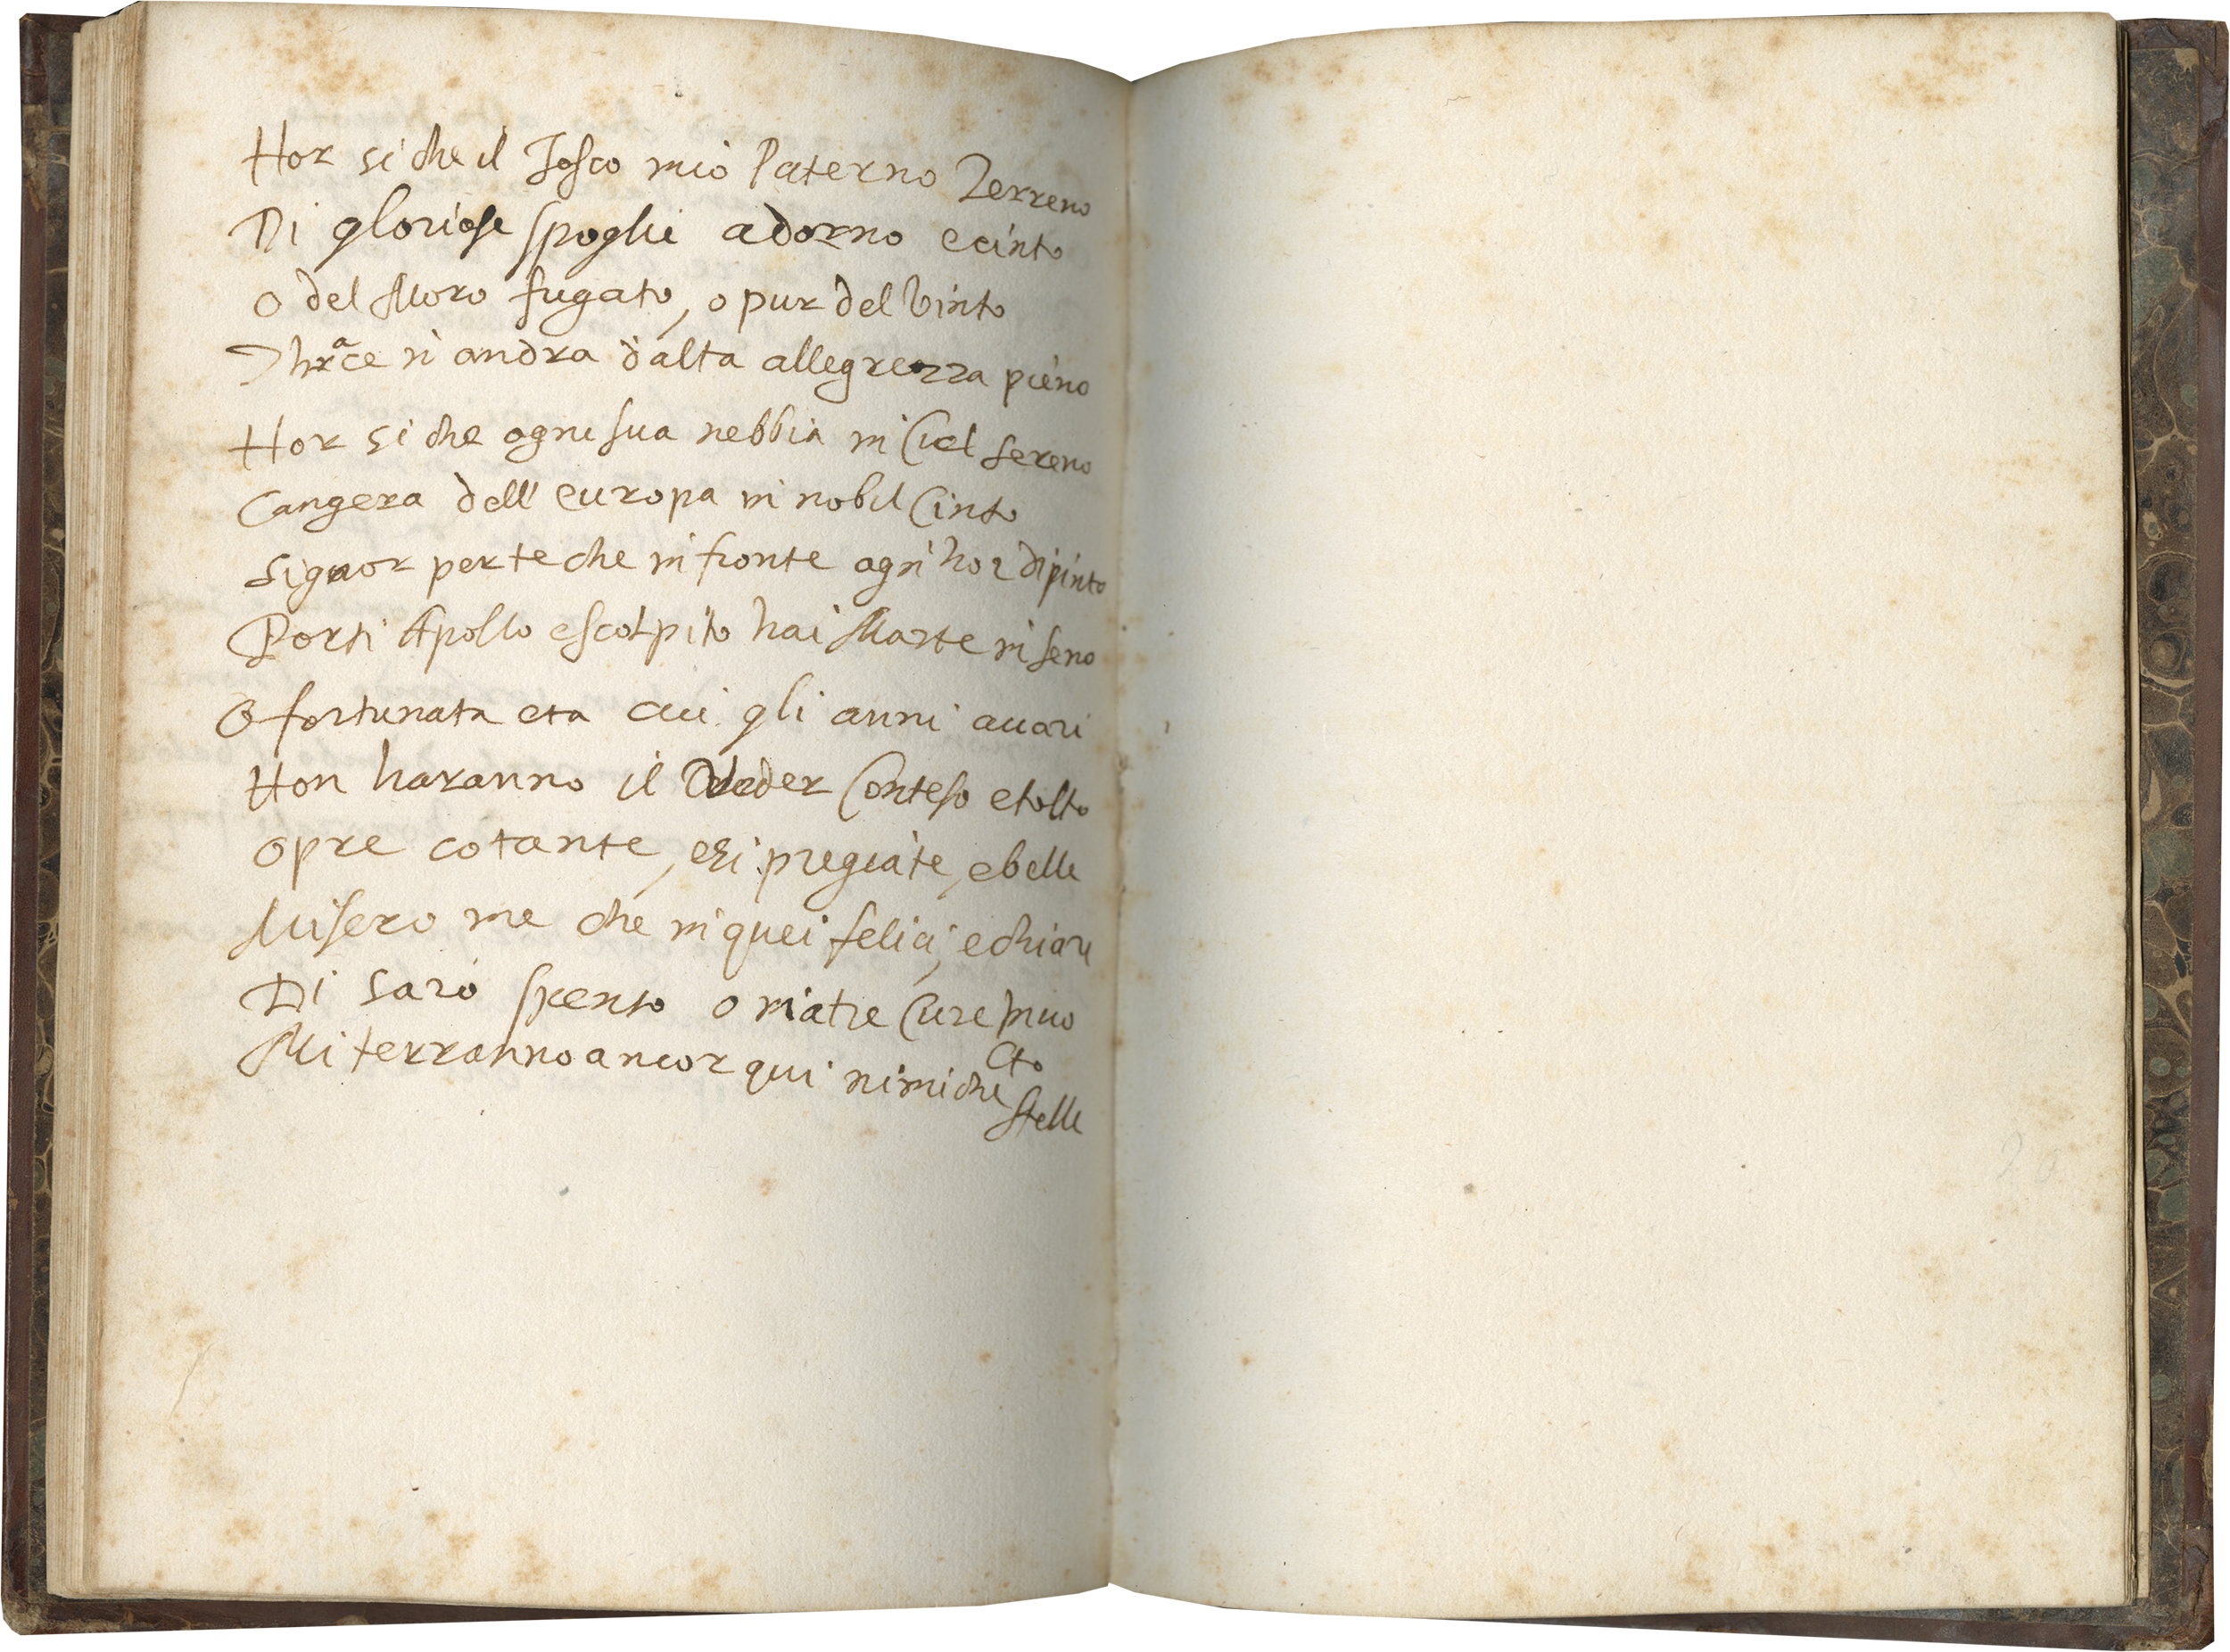 Hor si che il Tosco mio Paterno Terreno
Di gloriose spoglie adorno e cinto
O del Moro fugato, o pur del Vinto
Thrace si andra d'alta allegrezza pieno
Hor si che ogni sua nebbia in Ciel sereno
Cangera dell' europa in nobil Cinto
Signor per te che in fronte ogni hor dipinto
Porti Apollo e scolpito hai Marte in seno
O fortunata eta cui gli anni auari
Non haranno il Veder Conteso e tolto
Opre cotante, e si pregiate, e belle
Misero me che in quei felici, e chiari
Di saró spento o in atre Cure Inuo
lto
Mi terranno ancor qui nimiche
stelle